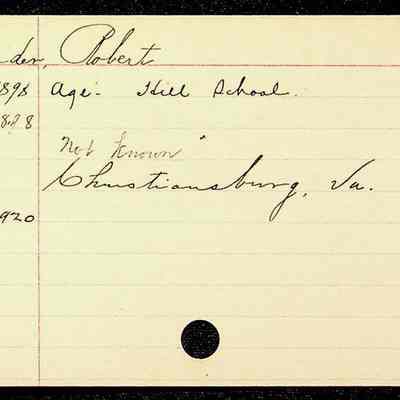 der, Robert
1898 Age - Hill School.
1878
"Not known"
Christiansburg, Va.
1920